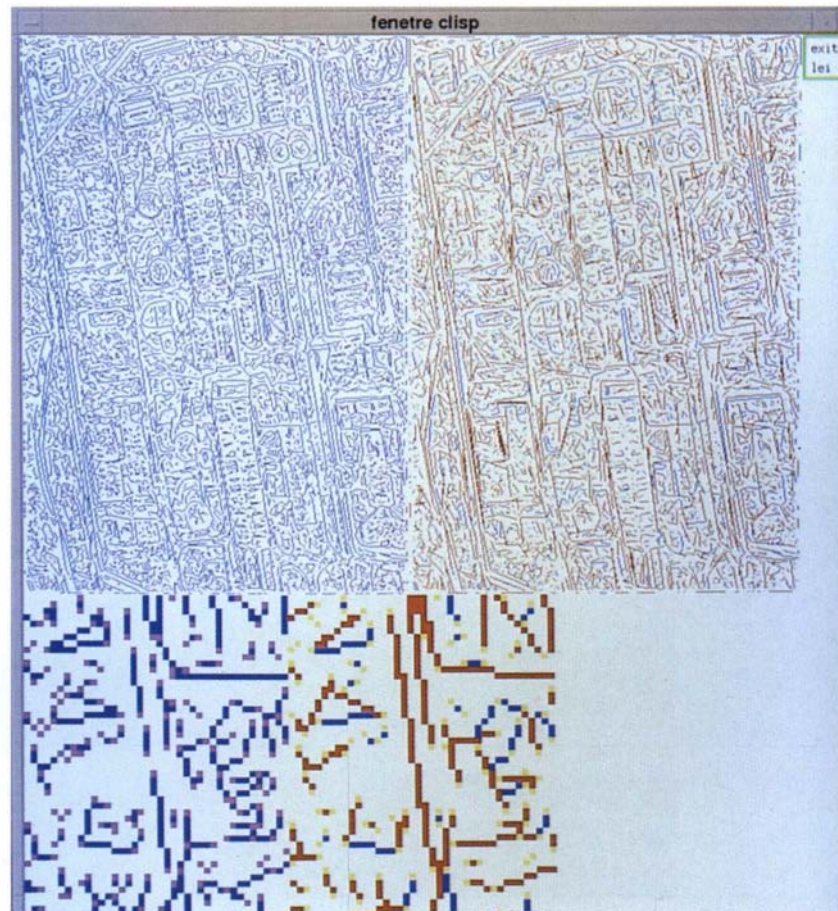 fenetre clisp
exit
lei